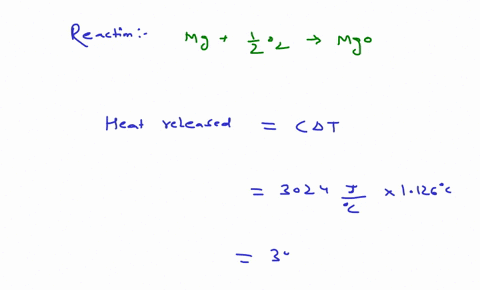 Reaction:- Mg + 1/2 O2 → MgO
Heat released = CΔT
= 3024 J/°C × 1.126°C
= 3